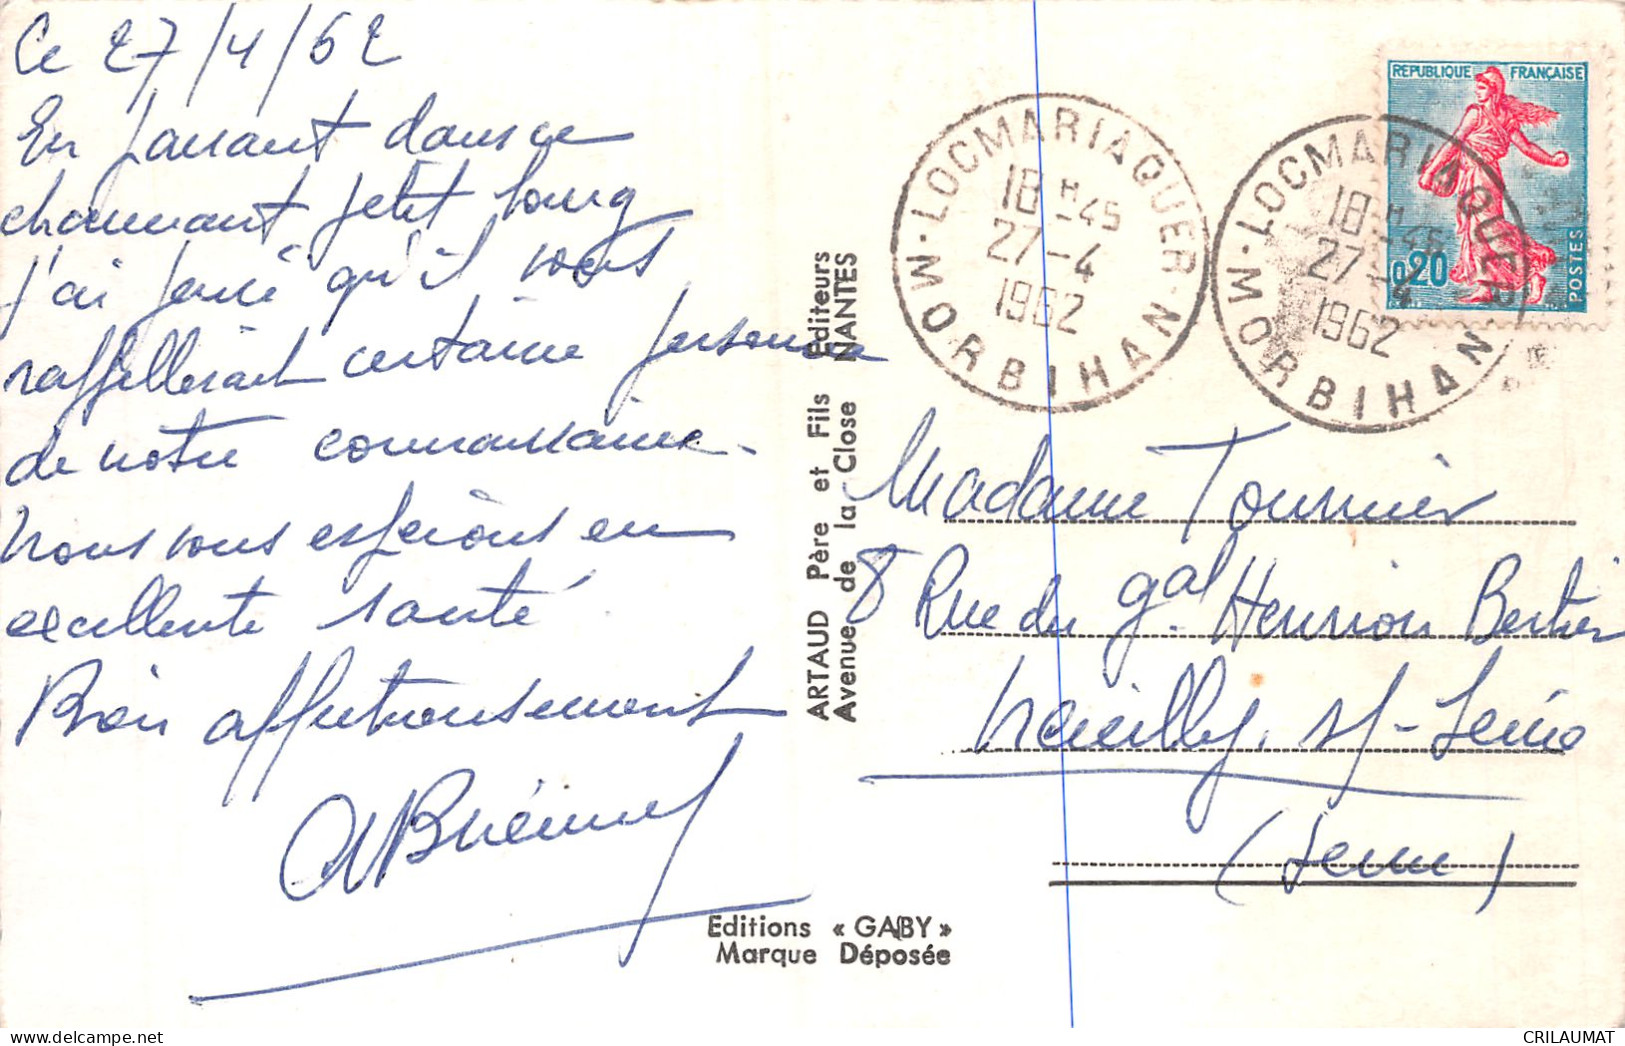 Ce 27/4/62
En passant dans ce
charmant petit bourg
j'ai pensé qu'il vous
rappellerait certaine personne
de notre connaissance.
Nous vous espérons en
excellente santé
Bien affectueusement
ARTAUD Père et Fils Editeurs
Avenue de la Close NANTES
Editions « GABY »
Marque Déposée
LOCMARIAQUER
18H-45
27-4
1962
MORBIHAN
LOCMARIAQUER
18H-45
27-4
1962
MORBIHAN
REPUBLIQUE FRANÇAISE
0,20
POSTES
Madame Tournier
8 Rue du Gal Henrion Bertier
Neuilly s/-Seine
(Seine)
CRILAUMAT